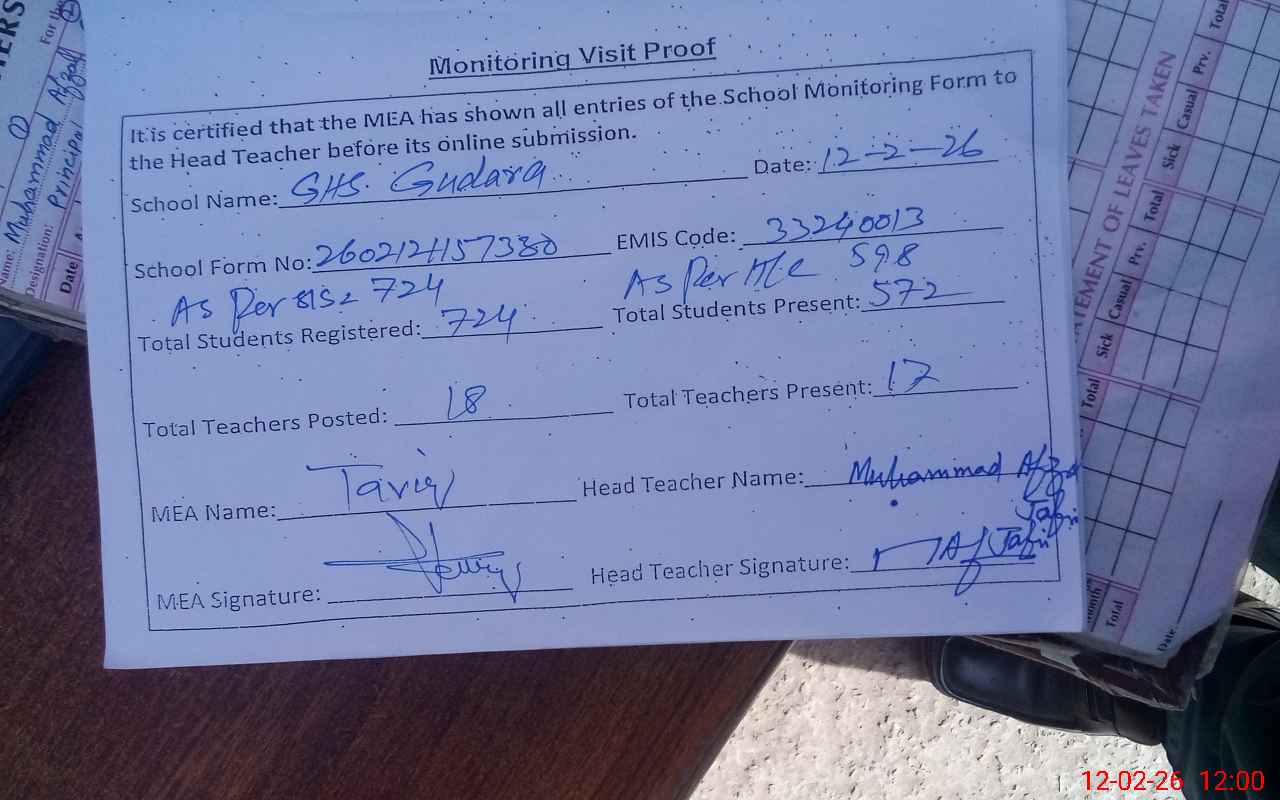 Monitoring Visit Proof
It is certified that the MEA has shown all entries of the School Monitoring Form to
the Head Teacher before its online submission.
School Name: GHS. Gudara Date: 12-2-26
School Form No: EMIS Code: 33240013
As Per SIS 724 As Per 598
Total Students Registered: 724 Total Students Present: 572
Total Teachers Posted: 18 Total Teachers Present: 17
MEA Name: Tariq Head Teacher Name: Muhammad Afzal
Jafri
MEA Signature: Head Teacher Signature: Jafri
ERS
For the
Name: Muhammad Afzal
Designation: Principal
Date
STATEMENT OF LEAVES TAKEN
Sick Casual Prv. Total
Sick Casual Prv. Total
Total
Total
Date:
12-02-26 12:00